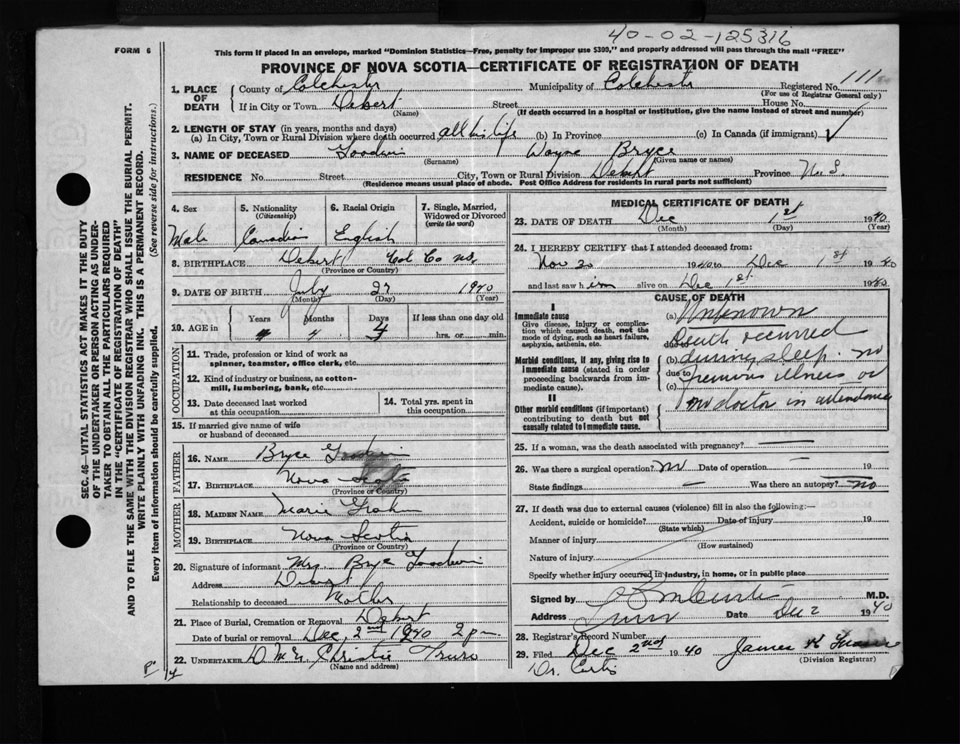 40-02-125316
FORM 6
This form if placed in an envelope, marked "Dominion Statistics—Free, penalty for improper use $300," and properly addressed will pass through the mail "FREE"
PROVINCE OF NOVA SCOTIA—CERTIFICATE OF REGISTRATION OF DEATH
SEC. 46—VITAL STATISTICS ACT MAKES IT THE DUTY
OF THE UNDERTAKER OR PERSON ACTING AS UNDER-
TAKER TO OBTAIN ALL THE PARTICULARS REQUIRED
IN THE "CERTIFICATE OF REGISTRATION OF DEATH"
AND TO FILE THE SAME WITH THE DIVISION REGISTRAR WHO SHALL ISSUE THE BURIAL PERMIT.
WRITE PLAINLY WITH UNFADING INK. THIS IS A PERMANENT RECORD.
Every item of information should be carefully supplied. (See reverse side for instructions.)
1. PLACE OF DEATH County of Colchester Municipality of Colchester Registered No. 111
(For use of Registrar General only)
If in City or Town Debert Street House No.
(Name) (If death occurred in a hospital or institution, give the name instead of street and number)
2. LENGTH OF STAY (in years, months and days)
(a) In City, Town or Rural Division where death occurred all his life (b) In Province (c) In Canada (if immigrant) ✓
3. NAME OF DECEASED Goodwin Wayne Bryce
(Surname) (Given name or names)
RESIDENCE No. Street City, Town or Rural Division Debert Province N. S.
(Residence means usual place of abode. Post Office Address for residents in rural parts not sufficient)
4. Sex 5. Nationality (Citizenship) 6. Racial Origin 7. Single, Married, Widowed or Divorced (write the word)
Male Canadian English
8. BIRTHPLACE Debert Col Co NS
(Province or Country)
9. DATE OF BIRTH July 27 1940
(Month) (Day) (Year)
10. AGE in Years Months Days If less than one day old
4 4 hrs. or min.
OCCUPATION
11. Trade, profession or kind of work as
spinner, teamster, office clerk, etc.
12. Kind of industry or business, as cotton-
mill, lumbering, bank, etc.
13. Date deceased last worked
at this occupation
14. Total yrs. spent in
this occupation
15. If married give name of wife
or husband of deceased
FATHER
16. NAME Bryce Goodwin
17. BIRTHPLACE Nova Scotia
(Province or Country)
MOTHER
18. MAIDEN NAME Marie
19. BIRTHPLACE Nova Scotia
(Province or Country)
20. Signature of informant Mrs. Bryce Goodwin
Address Debert
Relationship to deceased Mother
21. Place of Burial, Cremation or Removal Debert
Date of burial or removal Dec, 2nd 1940 2 pm
22. UNDERTAKER Christie Truro
(Name and address)
MEDICAL CERTIFICATE OF DEATH
23. DATE OF DEATH Dec 1st 1940
(Month) (Day) (Year)
24. I HEREBY CERTIFY that I attended deceased from:
Nov 20 1940 to Dec 1st 1940
and last saw him alive on Dec 1st 1940
CAUSE OF DEATH
I
Immediate cause
Give disease, injury or complica-
tion which caused death, not the
mode of dying, such as heart failure,
asphyxia, asthenia, etc.
Morbid conditions, if any, giving rise to
immediate cause (stated in order
proceeding backwards from im-
mediate cause).
II
Other morbid conditions (if important)
contributing to death but not
causally related to immediate cause.
(a) Unknown
due to Death occurred
(b) during sleep no
due to previous illness or
(c)
no doctor in attendance
25. If a woman, was the death associated with pregnancy? —
26. Was there a surgical operation? no Date of operation — 19
State findings — Was there an autopsy? no
27. If death was due to external causes (violence) fill in also the following:—
Accident, suicide or homicide? Date of injury 19
(State which)
Manner of injury
(How sustained)
Nature of injury
Specify whether injury occurred in industry, in home, or in public place
Signed by M.D.
Address Truro Date Dec 2 1940
28. Registrar's Record Number
29. Filed Dec 2nd 1940 James
(Division Registrar)
Dr. Curtis